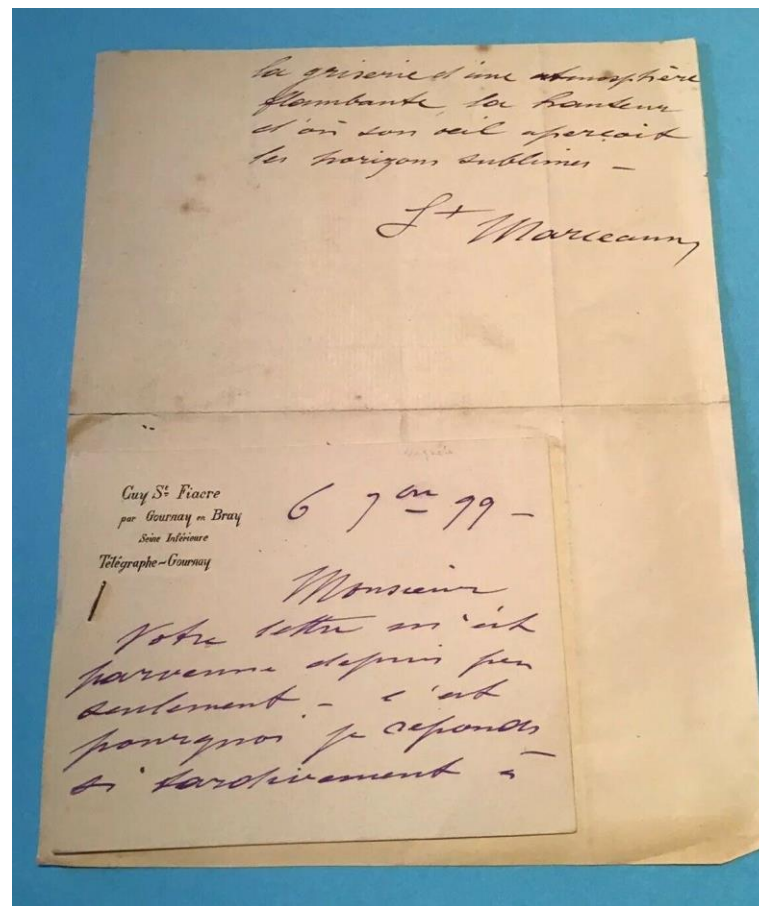 la griserie d'une atmosphère
flambante, la hauteur
d'où son œil aperçoit
les horizons sublimes –
St Marceaux
Guy St Fiacre
par Gournay en Bray
Seine Inférieure
Télégraphe-Gournay
6 7bre 99 –
Monsieur
Votre lettre m'est
parvenue depuis peu
seulement – c'est
pourquoi je réponds
si tardivement à